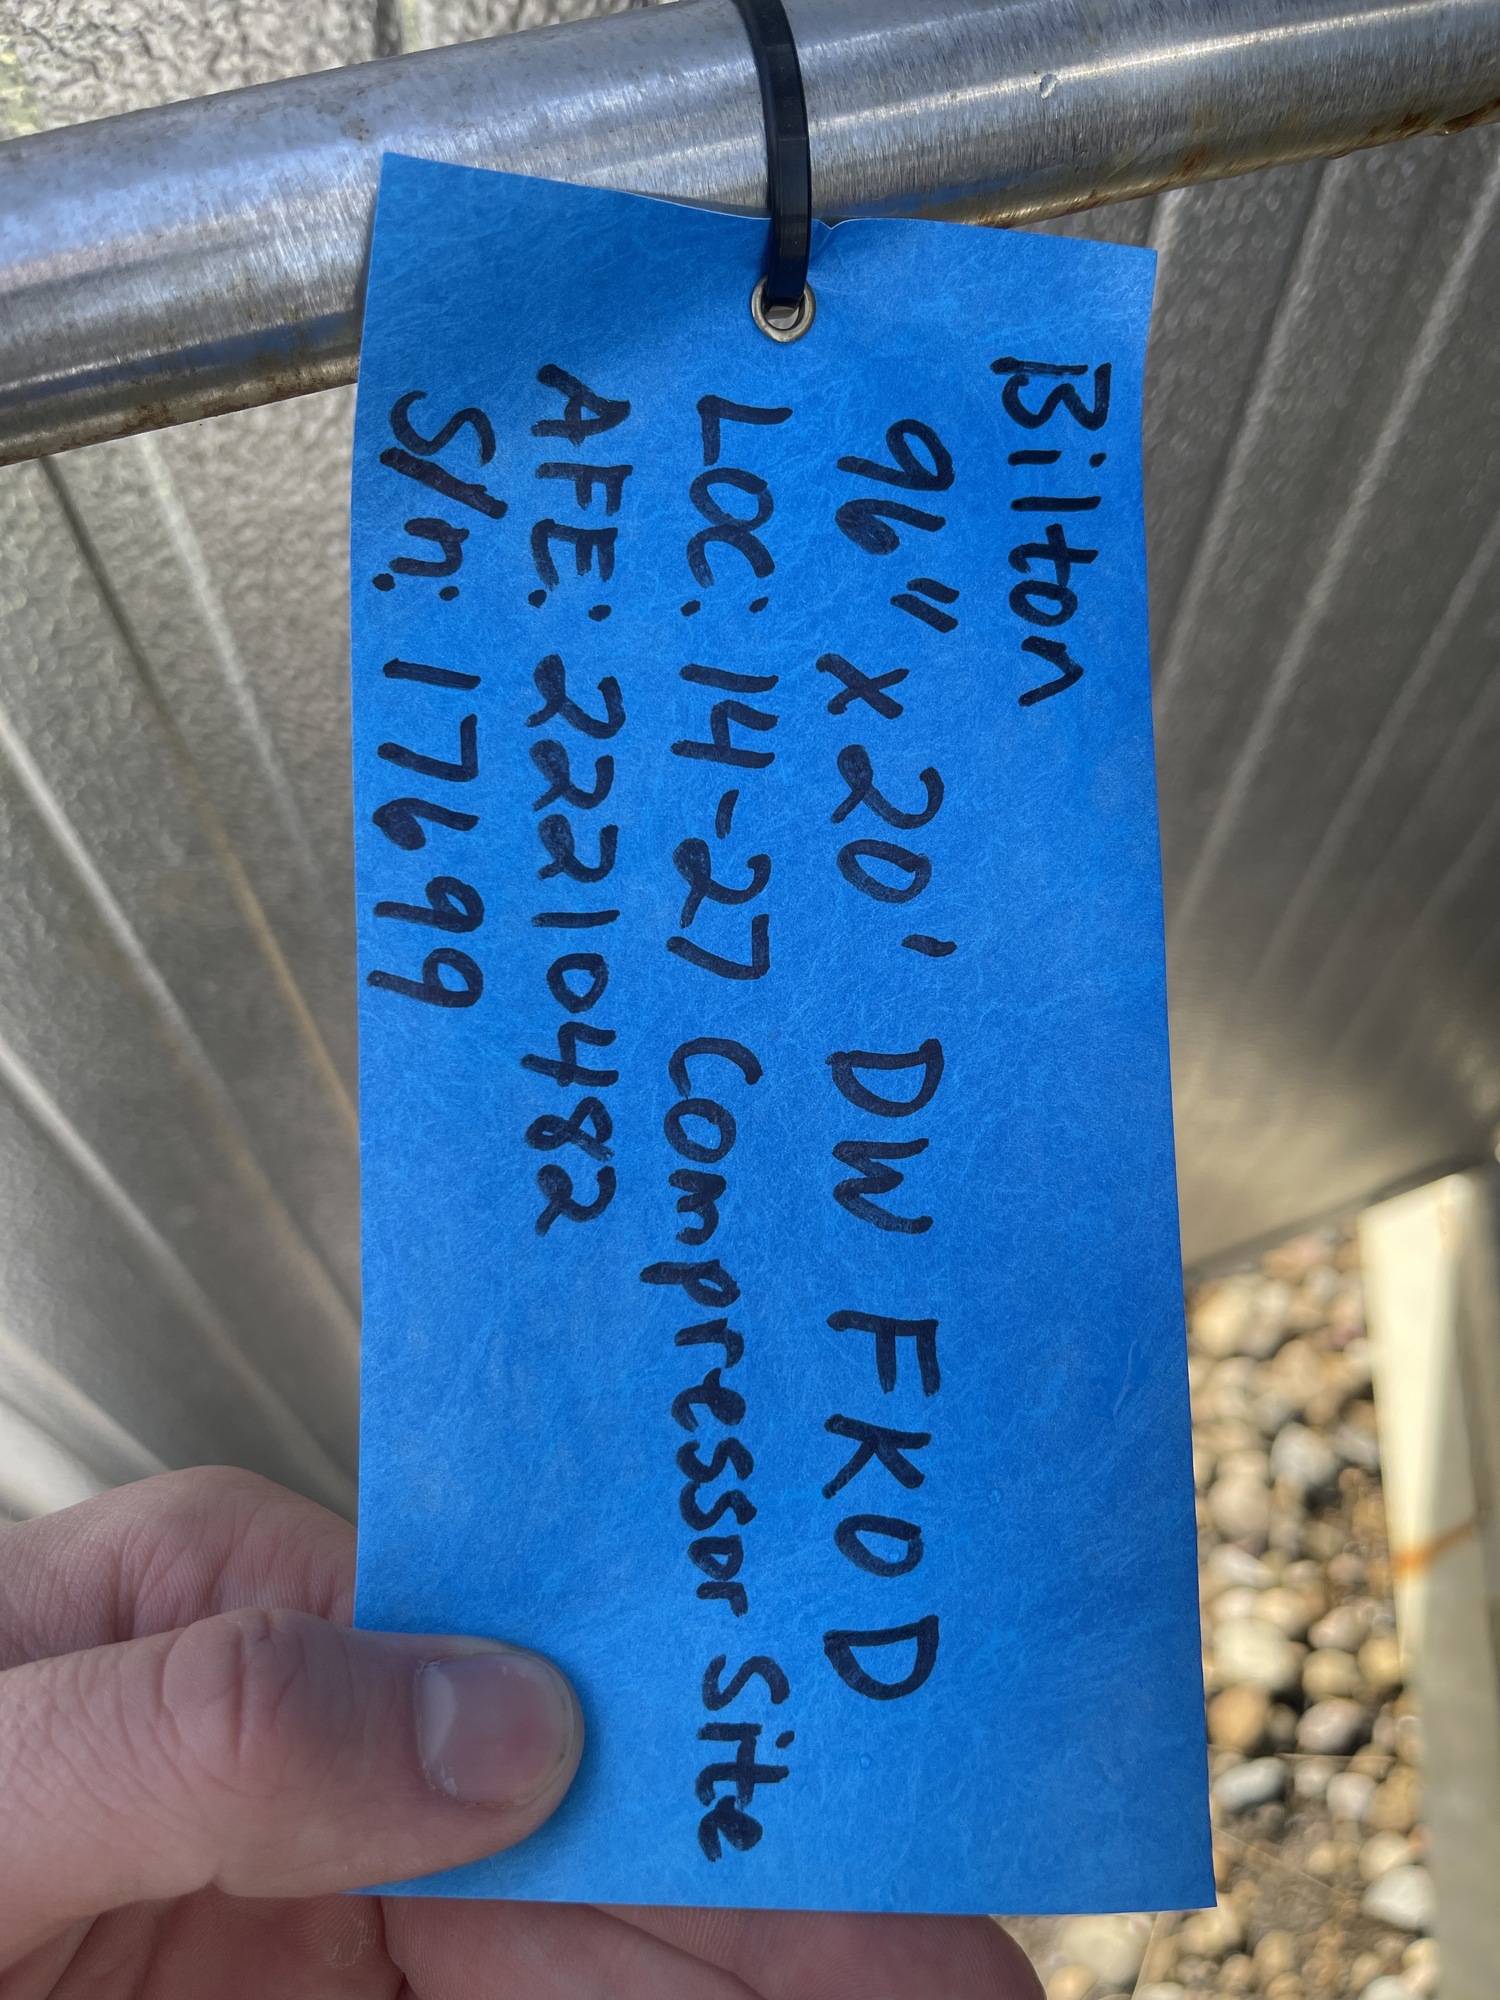 Bilton
96" x 20' DW FKOD
LOC: 14-27 Compressor Site
AFE: 22210482
S/n: 17699